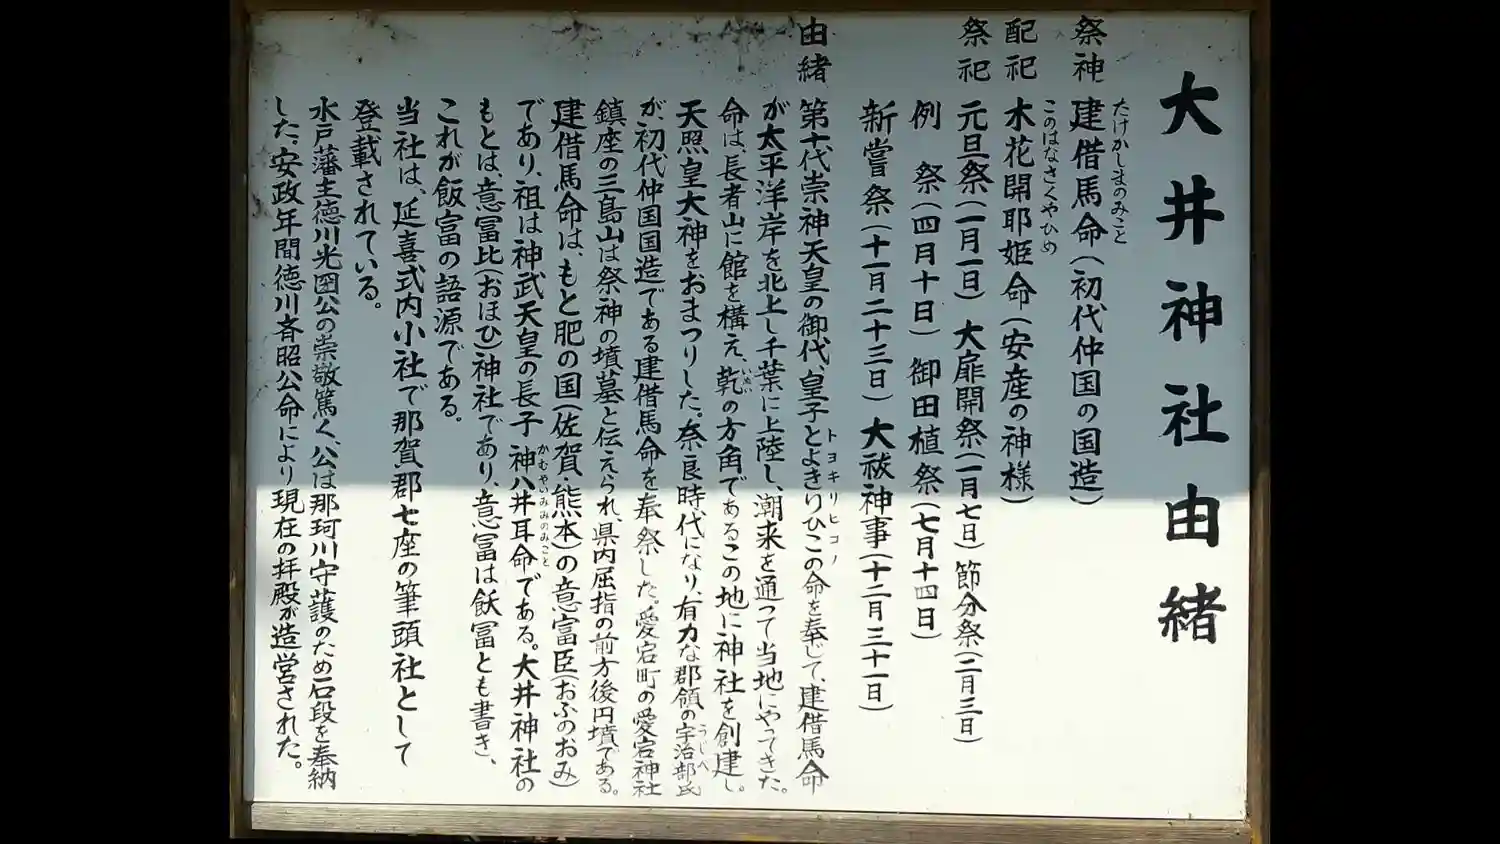 大井神社由緒
祭神 建借馬命(初代仲国の国造)
たけかしまのみこと
配祀 木花開耶姫命(安産の神様)
このはなさくやひめ
祭祀 元旦祭(一月一日) 大扉開祭(一月七日) 節分祭(二月三日)
例 祭(四月十日) 御田植祭(七月十四日)
新嘗祭(十一月二十三日) 大祓神事(十二月三十一日)
由緒 第十代崇神天皇の御代、皇子とよきりひこの命を奉じて、建借馬命
トヨキリヒコノ
が太平洋岸を北上し千葉に上陸し、潮来を通って当地にやってきた。
命は、長者山に館を構え、乾の方角であるこの地に神社を創建し。
いぬい
天照皇大神をおまつりした。奈良時代になり、有力な郡領の宇治部氏
うじべ
が、初代仲国国造である建借馬命を奉祭した。愛宕町の愛宕神社
鎮座の三島山は祭神の墳墓と伝えられ、県内屈指の前方後円墳である。
建借馬命は、もと肥の国(佐賀・熊本)の意富臣(おふのおみ)
であり、祖は神武天皇の長子 神八井耳命である。大井神社の
かむやいみみのみこと
もとは、意冨比(おほひ)神社であり、意冨は飫冨とも書き、
これが飯富の語源である。
当社は、延喜式内小社で那賀郡七座の筆頭社として
登載されている。
水戸藩主徳川光圀公の崇敬篤く、公は那珂川守護のため石段を奉納
した。安政年間徳川斉昭公命により現在の拝殿が造営された。